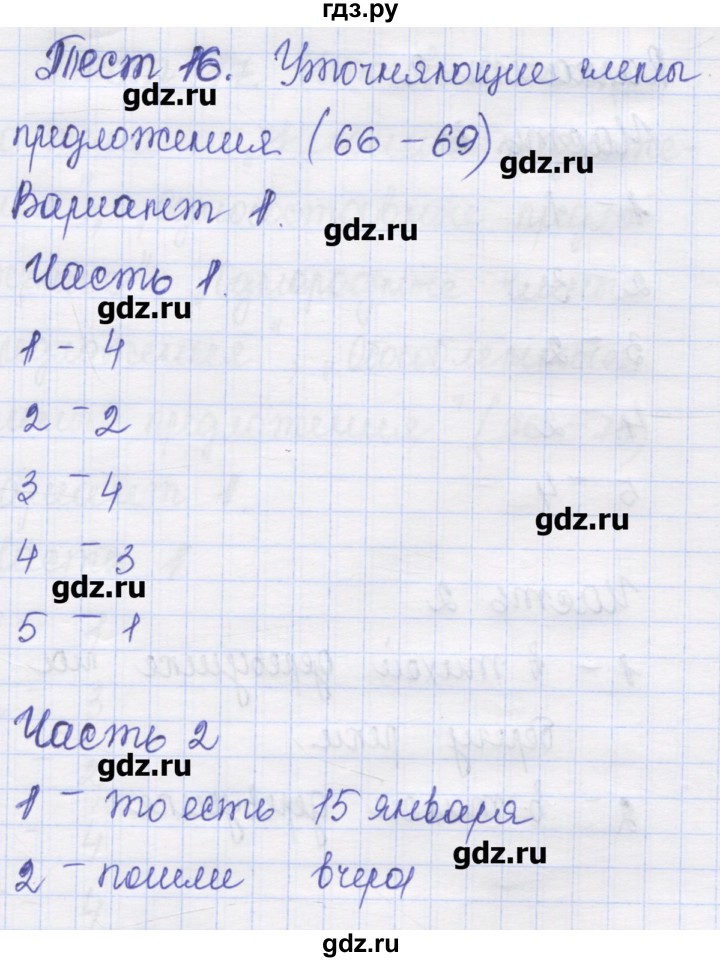 гдз.ру
Тест 16. Уточняющие члены
gdz.ru
предложения (66 - 69)
gdz.ru
Вариант 1.
gdz.ru
Часть 1.
gdz.ru
1 - 4
2 - 2
3 - 4
gdz.ru
4 - 3
gdz.ru
5 - 1
Часть 2
gdz.ru
1 - то есть 15 января
gdz.ru
2 - пошли вчера
gdz.ru